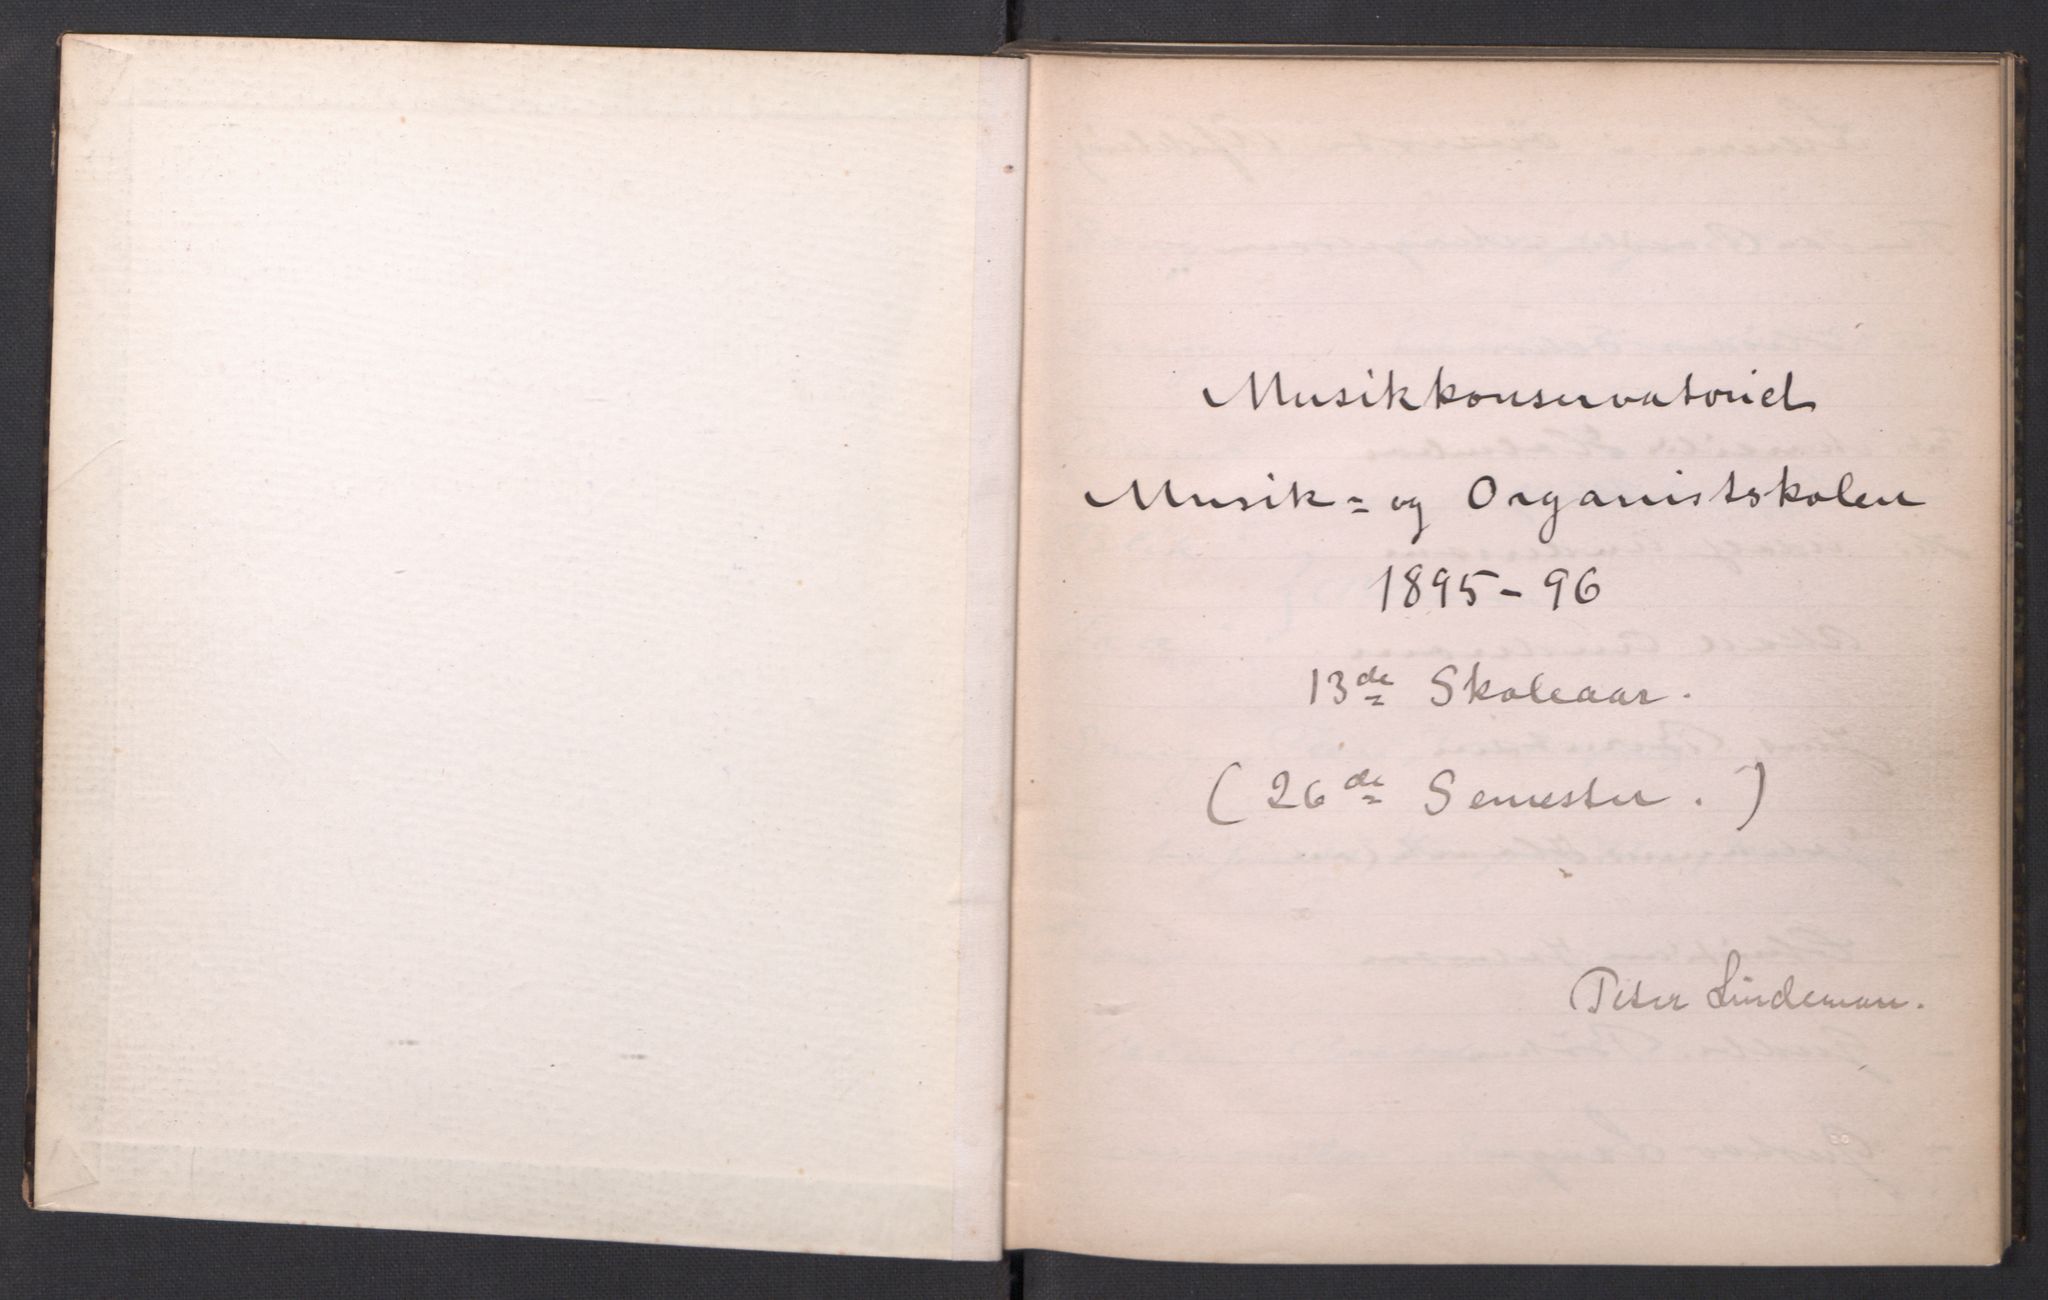 Musikkonservatoriet
Musik- og Organistskolen
1895-96
13de Skoleaar.
(26de Semester.)
Peter Lindeman.